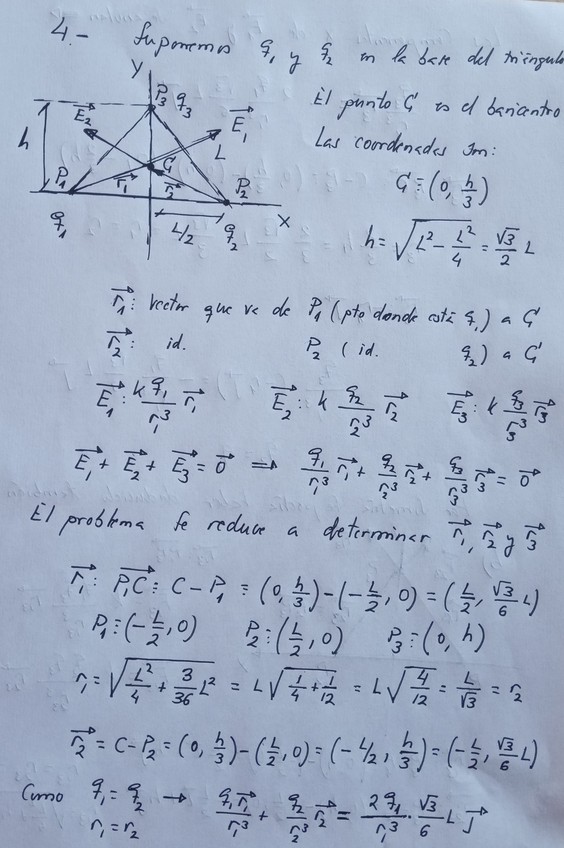 4.- Suponemos q₁ y q₂ en la base del triángulo
Y
P₃ q₃
E₂→
E₁→
El punto G es el baricentro
h
L
G
Las coordenadas son:
P₁
r₁→
r₂→
P₂
G ≡ (0, h/3)
q₁
L/2
q₂
X
h = √(L² - L²/4) = √3/2 L
r₁→: vector que va de P₁ (pto donde está q₁) a G
r₂→: id. P₂ (id. q₂) a G
E₁→: k q₁/r₁³ r₁→ E₂→: k q₂/r₂³ r₂→ E₃→: k q₃/r₃³ r₃→
E₁→ + E₂→ + E₃→ = 0→ ⟹ q₁/r₁³ r₁→ + q₂/r₂³ r₂→ + q₃/r₃³ r₃→ = 0→
El problema se reduce a determinar r₁→, r₂→ y r₃→
r₁→: P₁C→ = C - P₁ = (0, h/3) - (-L/2, 0) = (L/2, √3/6 L)
P₁ ≡ (-L/2, 0) P₂ ≡ (L/2, 0) P₃ ≡ (0, h)
r₁ = √(L²/4 + 3/36 L²) = L√(1/4 + 1/12) = L√(4/12) = L/√3 = r₂
r₂→ = C - P₂ = (0, h/3) - (L/2, 0) = (-L/2, h/3) = (-L/2, √3/6 L)
Como q₁ = q₂ → q₁r₁→/r₁³ + q₂/r₂³ r₂→ = 2q₁/r₁³ · √3/6 L J→
r₁ = r₂